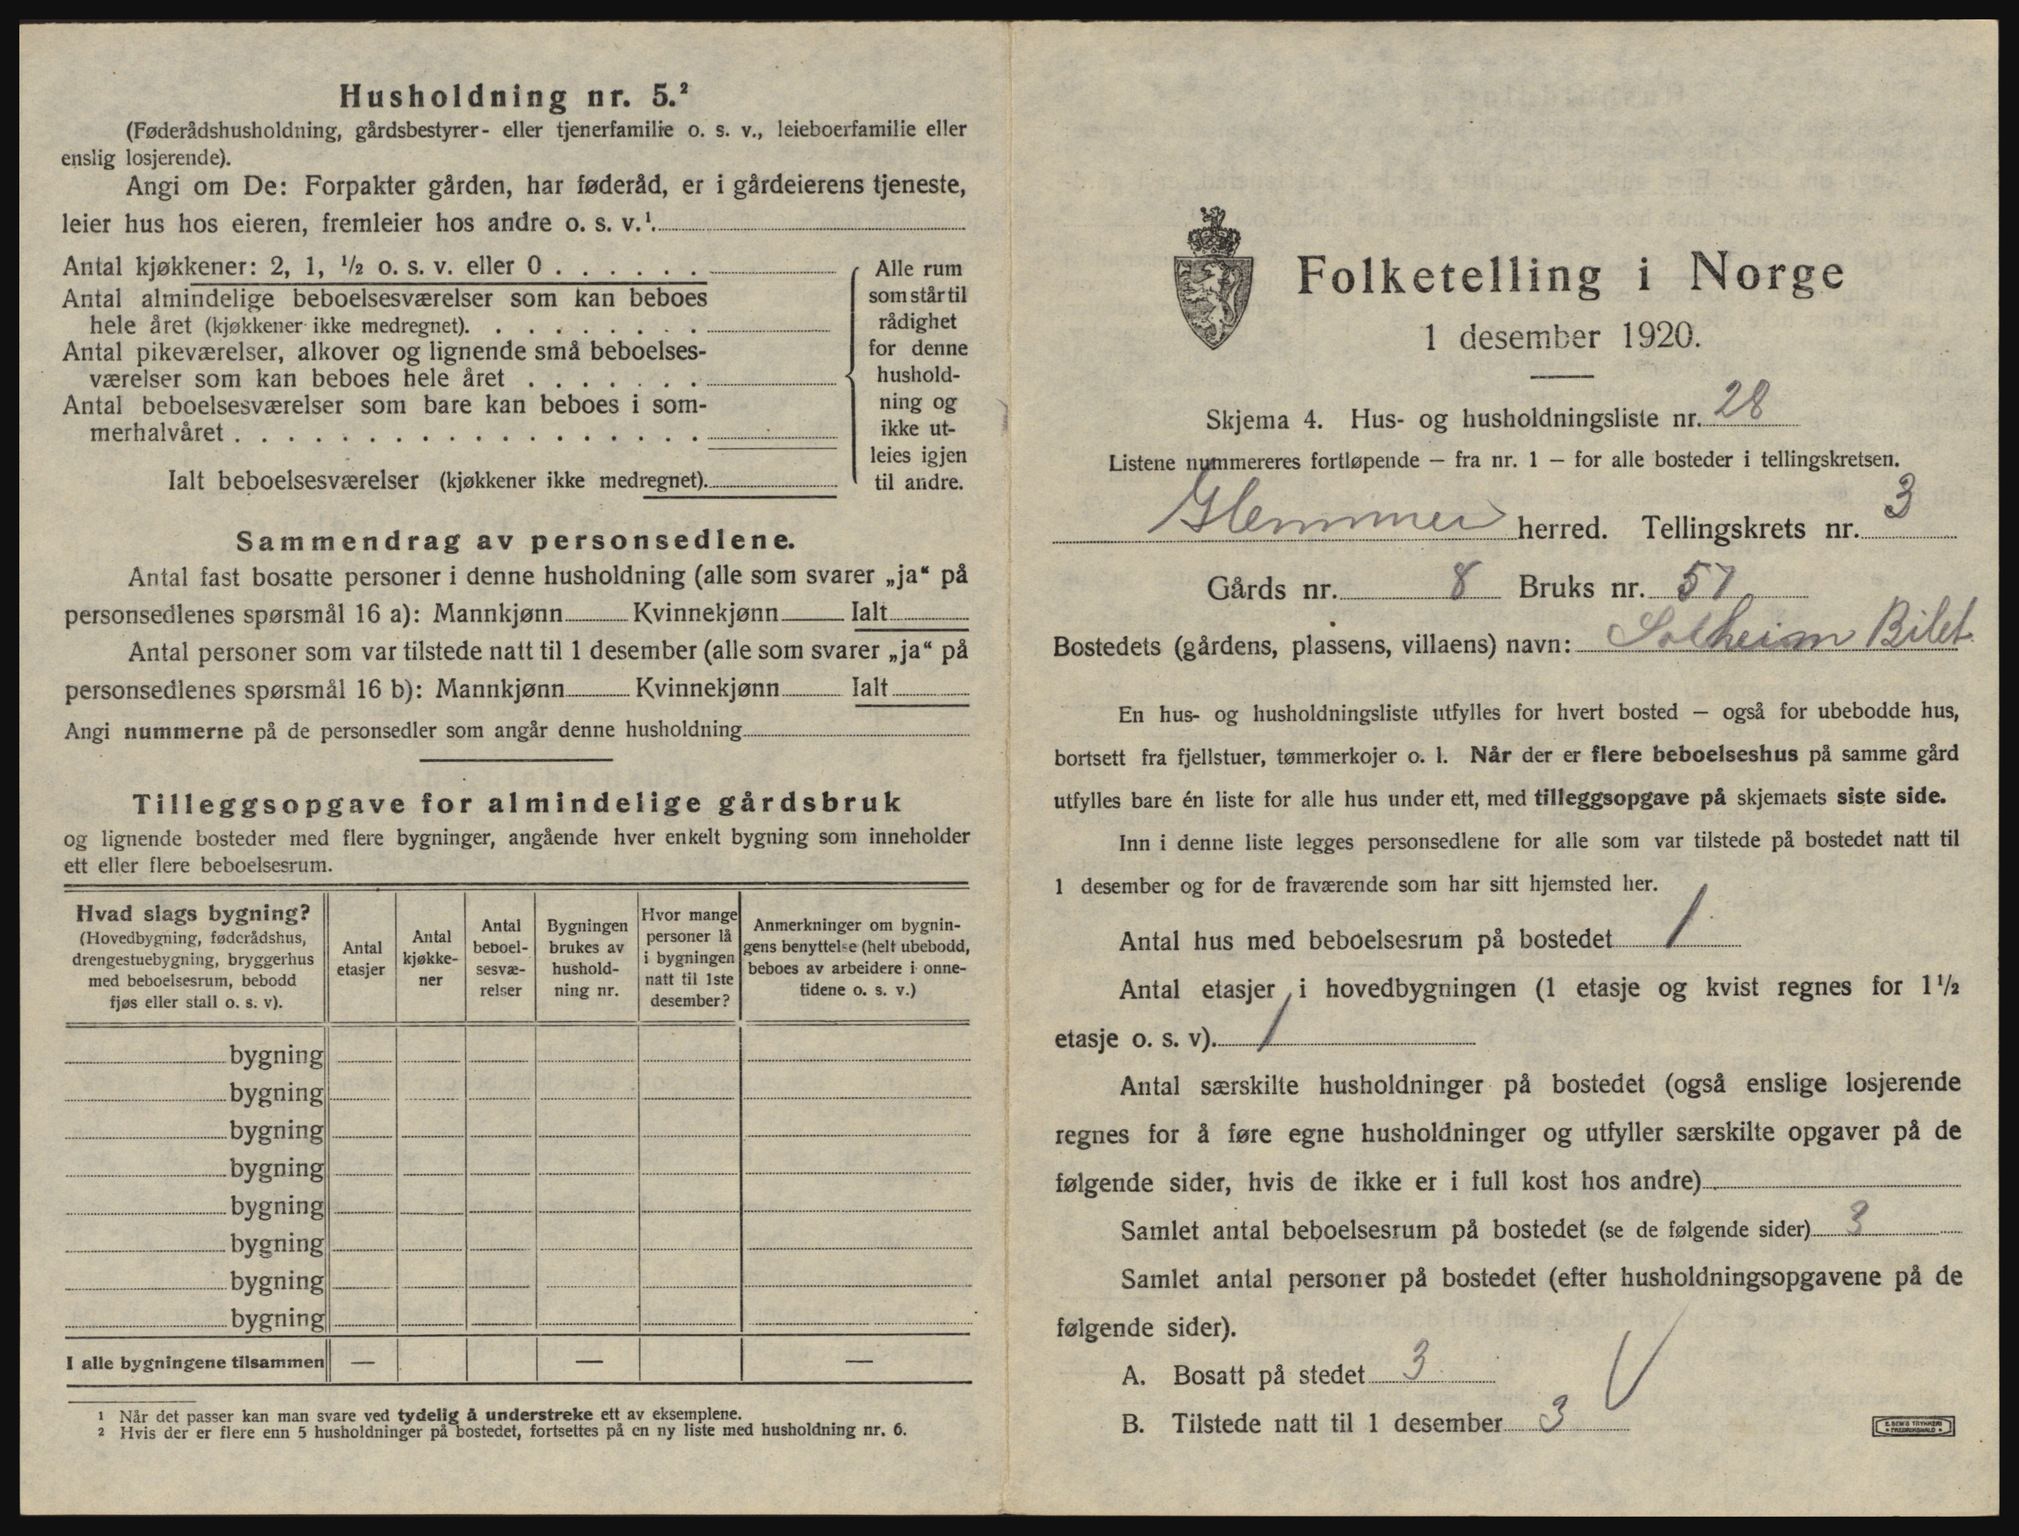 Husholdning nr. 5.²
(Føderådshusholdning, gårdsbestyrer- eller tjenerfamilie o. s. v., leieboerfamilie eller
enslig losjerende).
Angi om De: Forpakter gården, har føderåd, er i gårdeierens tjeneste,
leier hus hos eieren, fremleier hos andre o. s. v.¹.
Antal kjøkkener: 2, 1, ½ o. s. v. eller 0 . . . . . .
Antal almindelige beboelsesværelser som kan beboes
hele året (kjøkkener ikke medregnet). . . . . . . . .
Antal pikeværelser, alkover og lignende små beboelses-
værelser som kan beboes hele året . . . . . . .
Antal beboelsesværelser som bare kan beboes i som-
merhalvåret . . . . . . . . . . . . . . . . . .
Ialt beboelsesværelser (kjøkkener ikke medregnet).
Alle rum
som står til
rådighet
for denne
hushold-
ning og
ikke ut-
leies igjen
til andre.
Sammendrag av personsedlene.
Antal fast bosatte personer i denne husholdning (alle som svarer „ja“ på
personsedlenes spørsmål 16 a): Mannkjønn Kvinnekjønn Ialt
Antal personer som var tilstede natt til 1 desember (alle som svarer „ja“ på
personsedlenes spørsmål 16 b): Mannkjønn Kvinnekjønn Ialt
Angi nummerne på de personsedler som angår denne husholdning
Tilleggsopgave for almindelige gårdsbruk
og lignende bosteder med flere bygninger, angående hver enkelt bygning som inneholder
ett eller flere beboelsesrum.
Hvad slags bygning?
(Hovedbygning, føderådshus,
drengestuebygning, bryggerhus
med beboelsesrum, bebodd
fjøs eller stall o. s. v).
Antal
etasjer
Antal
kjøkke-
ner
Antal
beboel-
sesvæ-
relser
Bygningen
brukes av
hushold-
ning nr.
Hvor mange
personer lå
i bygningen
natt til 1ste
desember?
Anmerkninger om bygnin-
gens benyttelse (helt ubebodd,
beboes av arbeidere i onne-
tidene o. s. v.)
bygning
bygning
bygning
bygning
bygning
bygning
bygning
bygning
I alle bygningene tilsammen — — —
¹ Når det passer kan man svare ved tydelig å understreke ett av eksemplene.
² Hvis der er flere enn 5 husholdninger på bostedet, fortsettes på en ny liste med husholdning nr. 6.
Folketelling i Norge
1 desember 1920.
Skjema 4. Hus- og husholdningsliste nr. 28
Listene nummereres fortløpende — fra nr. 1 — for alle bosteder i tellingskretsen.
Glemmer herred. Tellingskrets nr. 3
Gårds nr. 8 Bruks nr. 57
Bostedets (gårdens, plassens, villaens) navn: Solheim Bilet
En hus- og husholdningsliste utfylles for hvert bosted — også for ubebodde hus,
bortsett fra fjellstuer, tømmerkojer o. l. Når der er flere beboelseshus på samme gård
utfylles bare én liste for alle hus under ett, med tilleggsopgave på skjemaets siste side.
Inn i denne liste legges personsedlene for alle som var tilstede på bostedet natt til
1 desember og for de fraværende som har sitt hjemsted her.
Antal hus med beboelsesrum på bostedet 1
Antal etasjer i hovedbygningen (1 etasje og kvist regnes for 1½
etasje o. s. v). 1
Antal særskilte husholdninger på bostedet (også enslige losjerende
regnes for å føre egne husholdninger og utfyller særskilte opgaver på de
følgende sider, hvis de ikke er i full kost hos andre)
Samlet antal beboelsesrum på bostedet (se de følgende sider) 3
Samlet antal personer på bostedet (efter husholdningsopgavene på de
følgende sider).
A. Bosatt på stedet 3
B. Tilstede natt til 1 desember 3
E. SEM'S TRYKKERI
FREDRIKSHALD